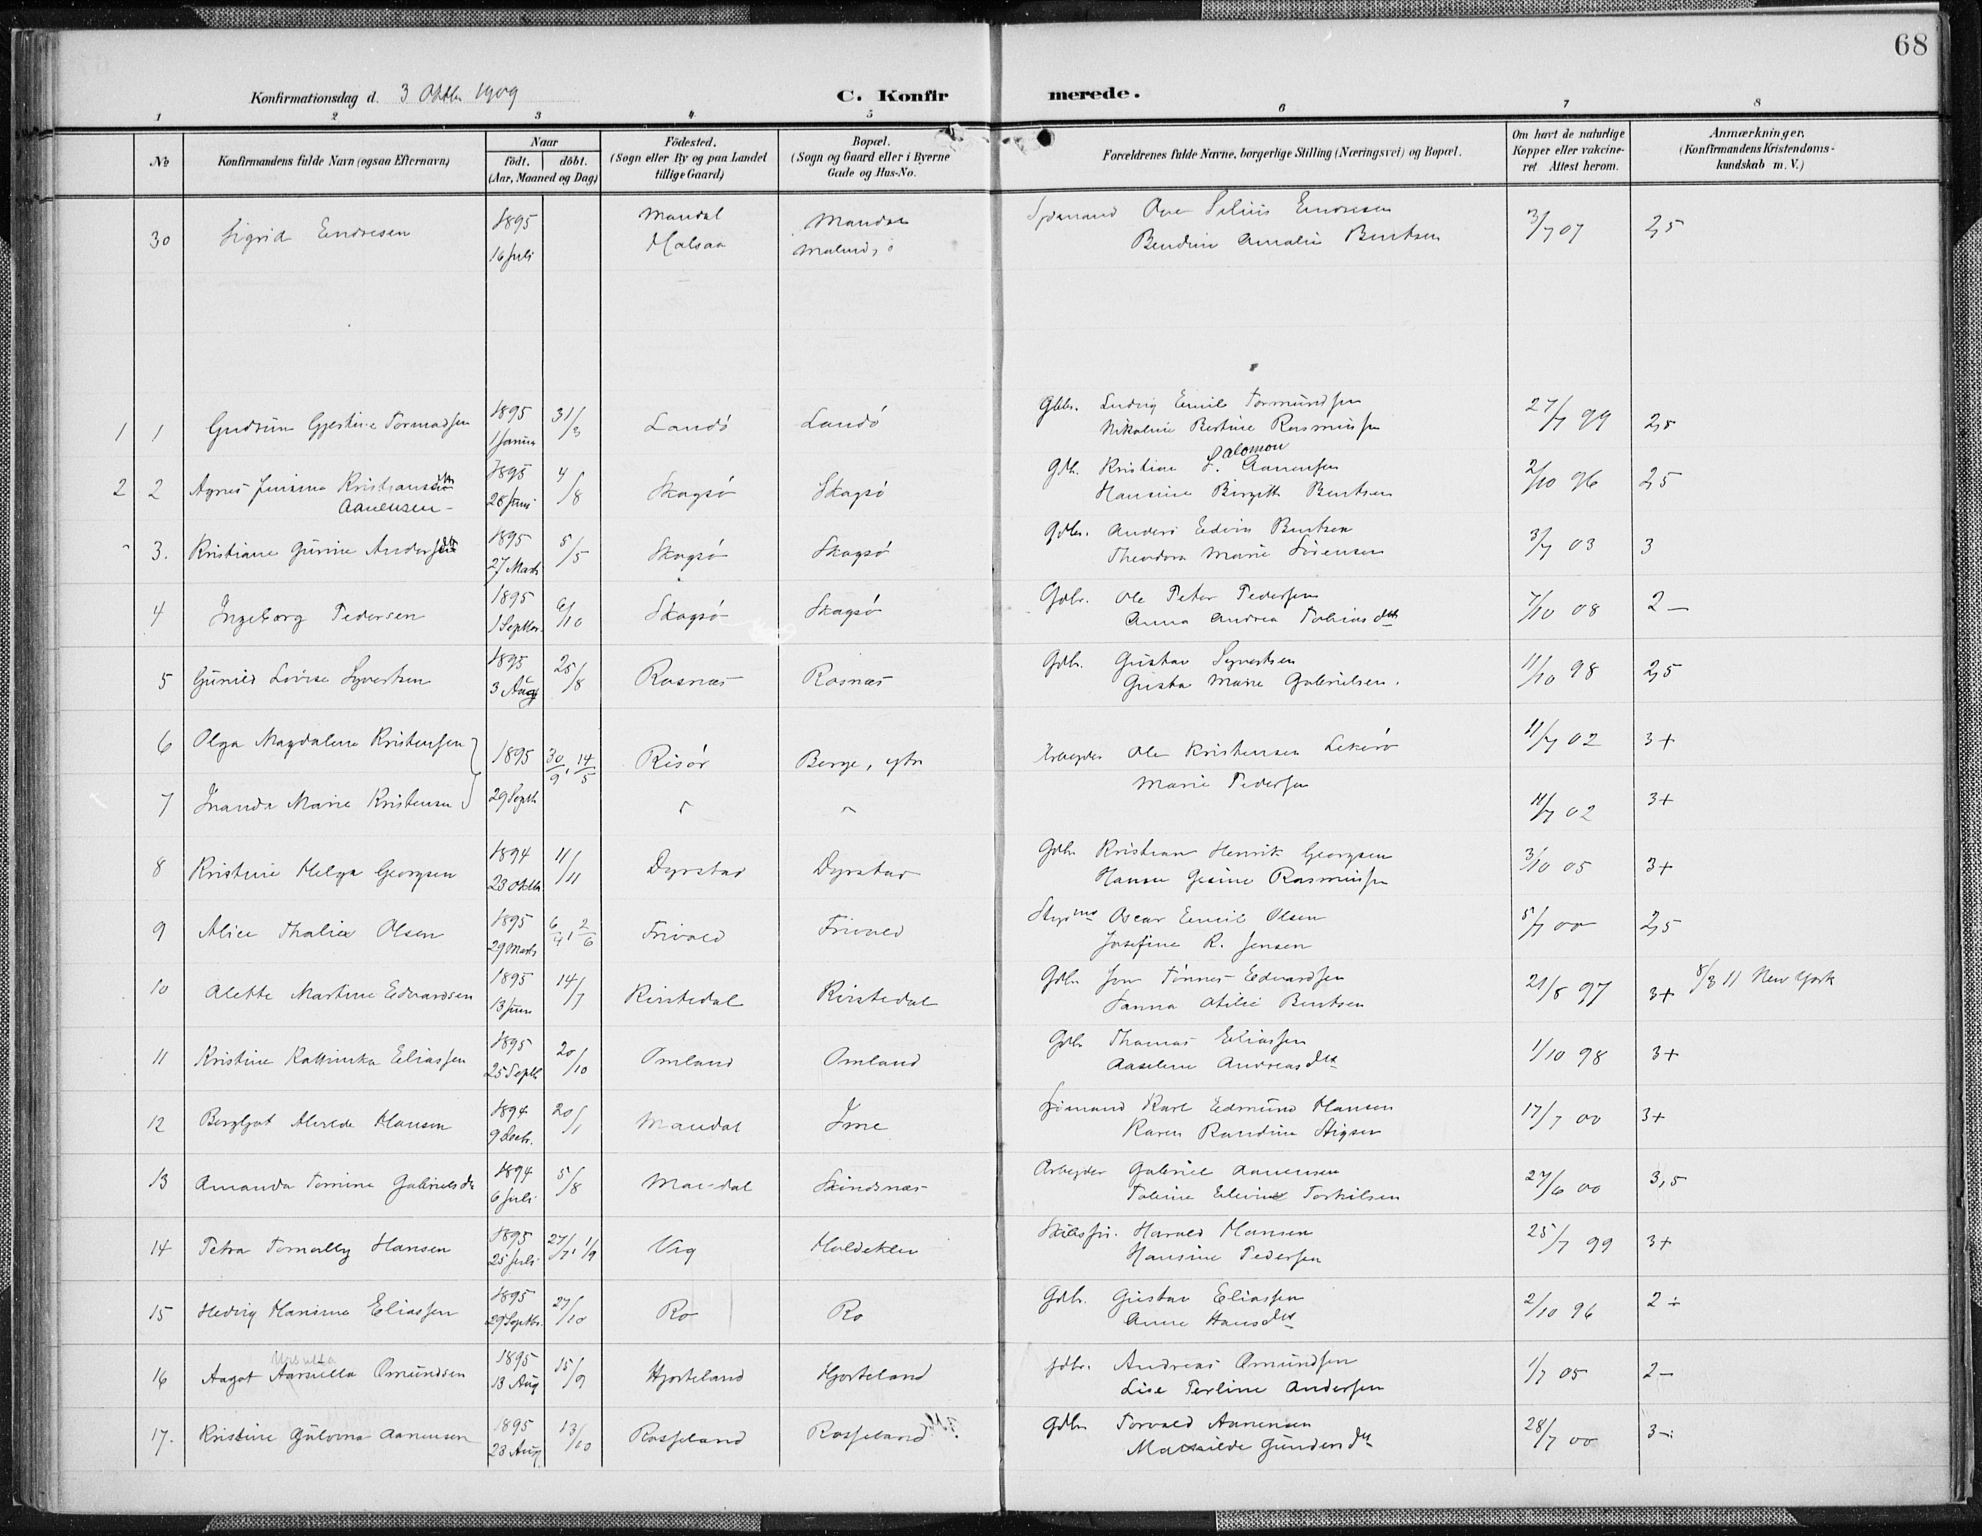 68
Konfirmationsdag d. 3 Oktbr 1909
C. Konfir merede.
1 2 3 4 5 6 7 8
No
Konfirmandens fulde Navn (ogsaa Efternavn)
Naar
födt. döbt.
(Aar, Maaned og Dag)
Födested.
(Sogn eller By og paa Landet
tillige Gaard)
Bopæl.
(Sogn og Gaard eller i Byerne
Gade og Hus-No.
Forældrenes fulde Navne, borgerlige Stilling (Næringsvei) og Bopæl.
Om havt de naturlige
Kopper eller vakcine-
ret Attest herom.
Anmærkninger.
(Konfirmandens Kristendoms-
kundskab m. V.)
30 Sigrid Endresen 1895 16 Juli Mandal Halsaa Mandal Sjømand Ove Endresen 3/7 07 2,5
Bendine Amalie Bentsen
1 1 Gudrun Tormodsen 1895 1 Januar 31/3 Landø Landø Gbr. Ludvig Emil Tormundsen 27/7 99 2,5
Nikoline Bertine Rasmussen
2 2 Agnes Kristians 1895 28 Juni 4/8 Skagsø Skagsø Gbr. Kristian S. Aanensen 2/10 96 2,5
Salomon
Aanensen Hansine Birgitte Bentsen
3. Kristiane Gurine Anders 1895 27 Marts 5/5 Skagsø Skagsø Gdbr. Anders Edvin Bentsen 3/7 03 3
Theodora Marie Sørensen
4 Ingeborg Pedersen 1895 1 Septbr. 6/10 Skagsø Skagsø Gdbr. Ole Peter Pedersen 7/10 08 2 —
Anna Andrea Tobiasdtr
5 Gunild Lovise Syvertsen 1895 3 Aug 25/8 Rosnæs Rosnæs Gdbr. Gustav Syvertsen 11/10 98 2,5
Gusta Marie Gabrielsen.
6 Olga Magdalene Kristensen 1895 30/9, 14/5 Risør Berge, ytr Arbeyder Ole Kristensen 11/7 02 3+
Marie Pedersen
7 Marie Kristensen 29 Septb " " 11/7 02 3+
8 Kristine Helga Georgsen 1894 23 Oktbr 11/11 Dyrstad Dyrstad Gdbr Kristian Henrik Georgsen 3/10 05 3+
Hanna Gesine Rasmussen
9 Alice Thalie Olsen 1895 29 Marts 6/4, 2/6 Frivold Frivold Oscar Emil Olsen 5/7 00 2,5
Josefine R. Jensen
10 Alette Martine Edvardsen 1895 13 Juni 14/7 Kirstedal Kirstedal Gdbr Tønnes Edvardsen 21/8 97 3+ 8/3 11 New York
Sanna Otilie Bentsen
11 Kristine Kathinka Eliassen 1895 25 Septb 20/10 Omland Omland Gdbr Thomas Eliassen 1/10 98 3+
Aaselene Andreasdtr
12 Bergljot Hansen 1894 9 Decbr. 20/1 Mandal Ime Sømand Karl Edmund Hansen 17/7 00 3+
Karen Randine Stigsen
13 Amanda Tomine Gabrielsdtr 1894 6 Juli 5/8 Mandal Skindsnæs Arbeyder Gabriel Aanensen 27/6 00 3,5
Torkilsen
14 Petra Hansen 1895 25 Juli 27/7, 1/9 Vig Harald Hansen 25/7 99 3+
Hansine Pedersen
15 Hedvig Hansine Eliassen 1895 29 Septbr. 27/10 Ro Ro Gdbr. Gustav Eliassen 2/10 96 2 ÷
Anne Hansdtr
Ursulla
16 Aagot Aarsulla Omundsen 1895 13 Aug 15/9 Hjorteland Hjorteland Gdbr. Andreas Omundsen 1/7 05 2 —
Lise Terline Andersen
17. Kristine Gulovna Aanensen 1895 23 Aug. 13/10 Rosseland Rosseland Gdbr Torvald Aanensen 28/7 00 3 ÷
Mathilde Gundersdtr